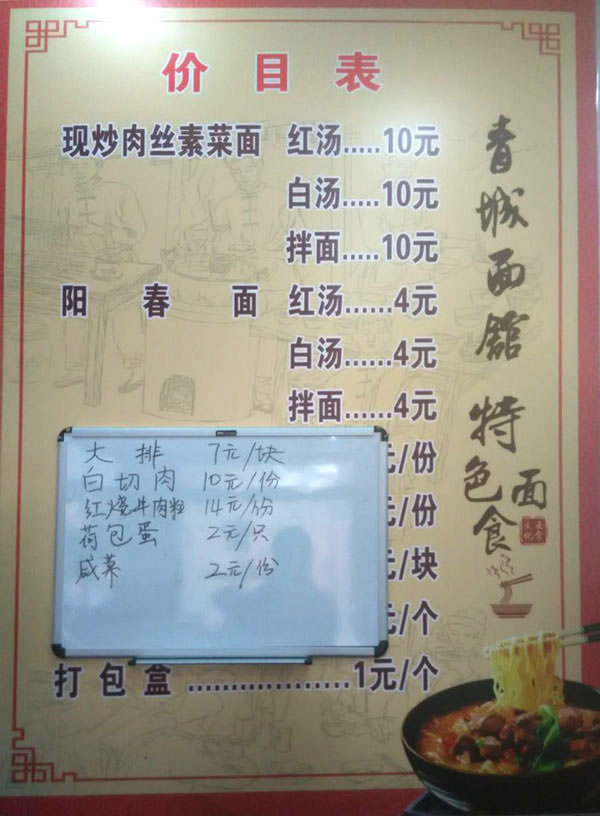 价目表
现炒肉丝素菜面 红汤.....10元
白汤.....10元
拌面.....10元
阳春面 红汤......4元
白汤......4元
拌面......4元
元/份
元/份
元/块
元/个
大排 7元/块
白切肉 10元/份
红烧牛肉粒 14元/份
荷包蛋 2元/只
咸菜 2元/份
打包盒..................1元/个
青城面馆
特色面食